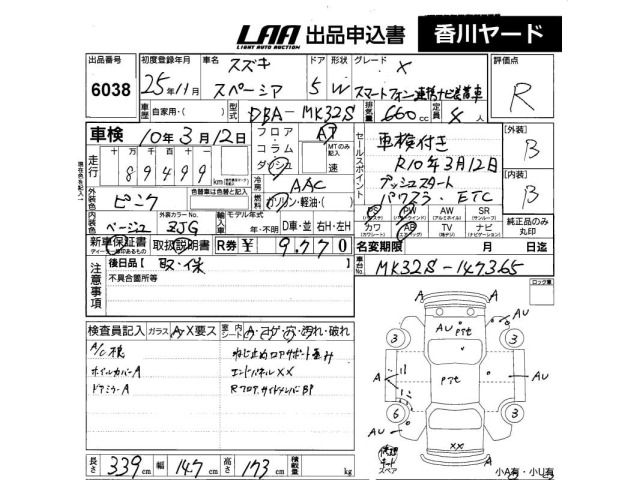 LAA 出品申込書 香川ヤード
LIGHT AUTO AUCTION
出品番号 6038
初度登録年月 25年11月
車名 スズキ スペーシア
ドア 5 形状 W
グレード X
スマートフォン連携ナビ装着車
評価点 R
車歴 自家用・( )
型式 DBA-MK32S
排気量 660cc
定員 4人
車検 10年3月12日
フロア・コラム・ダッシュ
AT
MTのみ記入 速
セールスポイント
車検付き
R10年3月12日
プッシュスタート
パワスラ・ETC
【外装】 B
【内装】 B
走行 十万 千百十
89499 km
冷房 AAC
外装色 ピンク
色替車は色替と記入
燃料 ガソリン・軽油・( )
内装色 ベージュ
外装カラーNo. ZJG
輸入車 モデル年式 年・不明
D車・並 右H・左H
PS PW AW SR
カワ AB TV ナビ
純正品のみ丸印
新車保証書 取扱説明書
R券 ¥ 9,770
名変期限 月 日迄
注意事項
後日品〔 取・保 〕
不具合箇所等
車台No. MK32S-147365
ロック車
検査員記入 ガラス A・X要ス
室内シート A・ヨゲ・穴・汚れ・破れ
ホイルカバーA
エンドパネルXX
ドアミラーA
A
A
AU
3
3
A
AU
6
3
AU
XX
スペア
小A有・小U有
長さ 339cm 幅 147cm 高さ 173cm 積載量 kg